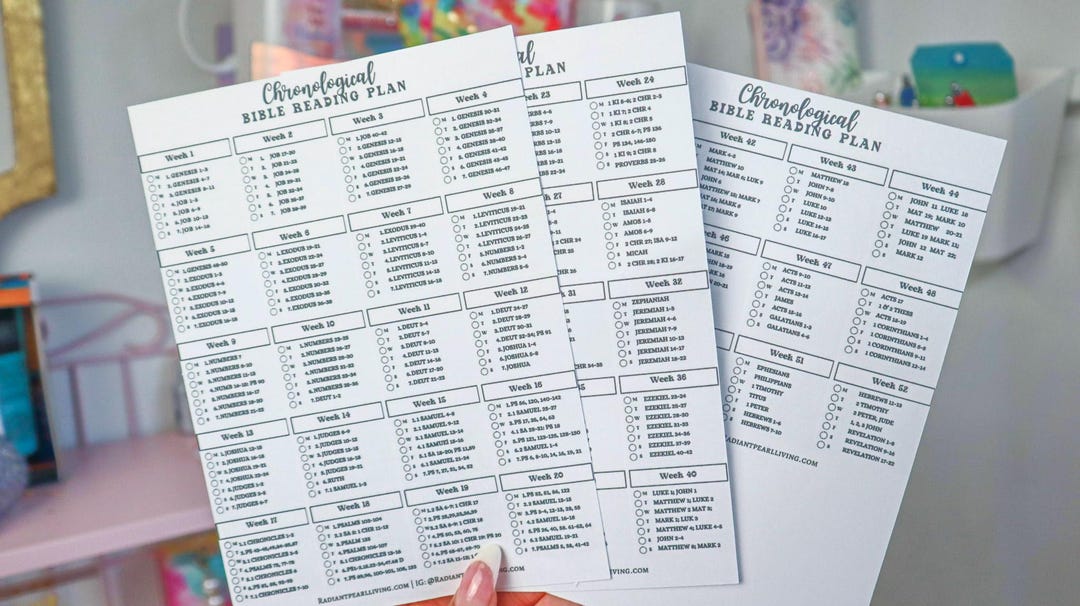 Chronological
BIBLE READING PLAN
Week 1
1. GENESIS 1-3
2. GENESIS 4-7
3. GENESIS 8-11
4. JOB 1-5
5. JOB 6-9
6. JOB 10-13
7. JOB 14-16
Week 2
1. JOB 17-20
2. JOB 21-23
3. JOB 24-28
4. JOB 29-31
5. JOB 32-34
6. JOB 35-37
7. JOB 38-39
Week 3
1. JOB 40-42
2. GENESIS 12-15
3. GENESIS 16-18
4. GENESIS 19-21
5. GENESIS 22-24
6. GENESIS 25-26
7. GENESIS 27-29
Week 4
1. GENESIS 30-31
2. GENESIS 32-34
3. GENESIS 35-37
4. GENESIS 38-40
5. GENESIS 41-42
6. GENESIS 43-45
7. GENESIS 46-47
Week 5
1. GENESIS 48-50
2. EXODUS 1-3
3. EXODUS 4-6
4. EXODUS 7-9
5. EXODUS 10-12
6. EXODUS 13-15
7. EXODUS 16-18
Week 6
1. EXODUS 19-21
2. EXODUS 22-24
3. EXODUS 25-27
4. EXODUS 28-29
5. EXODUS 30-32
6. EXODUS 33-35
7. EXODUS 36-38
Week 7
1. EXODUS 39-40
2. LEVITICUS 1-4
3. LEVITICUS 5-7
4. LEVITICUS 8-10
5. LEVITICUS 11-13
6. LEVITICUS 14-15
Week 8
1. LEVITICUS
2. LEVITICUS 22-23
3. LEVITICUS 24-25
4. LEVITICUS 26-27
5. NUMBERS 1-2
6. NUMBERS 3-4
7. NUMBERS 5-6
Week 9
1. NUMBERS 7
2. NUMBERS 8-10
3. NUMBERS 11-13
4. NUMS 14-15; PS 90
5. NUMBERS 16-17
6. NUMBERS 18-20
7. NUMBERS 21-22
Week 10
1. NUMBERS 23-25
2. NUMBERS 26-27
3. NUMBERS 28-30
4. NUMBERS 31-32
5. NUMBERS 33-34
6. NUMBERS 35-36
7. DEUT 1-2
Week 11
1. DEUT 3-4
2. DEUT 5-7
3. DEUT 8-10
4. DEUT 11-13
5. DEUT 14-16
6. DEUT 17-20
7. DEUT 21-23
Week 12
1. DEUT 24-27
2. DEUT 28-29
3. DEUT 30-31
4. DEUT 32-34; PS 91
5. JOSHUA 1-4
6. JOSHUA 5-8
7. JOSHUA
Week 13
1. JOSHUA 12-15
2. JOSHUA 16-18
3. JOSHUA 19-21
4. JOSHUA 22-24
5. JUDGES 1-2
6. JUDGES 3-5
7. JUDGES 6-7
Week 14
1. JUDGES 8-9
2. JUDGES 10-12
3. JUDGES 13-15
4. JUDGES 16-18
5. JUDGES 19-21
6. RUTH
7. 1 SAMUEL 1-3
Week 15
1. 1 SAMUEL 4-8
2. 1 SAMUEL 9-12
3. 1 SAMUEL 13-14
4. 1 SAMUEL 15-17
5. 1 SA 18-20; PS 11,59
6. 1 SAMUEL 21-24
7. PS 7, 27, 31, 34, 52
Week 16
1. PS 56, 120, 140-142
2. 1 SAMUEL 25-27
3. PS 17, 35, 54, 63
4. 1 SA 28-31; PS 18
5. PS 121, 123-125, 128-130
6. 2 SAMUEL 1-4
7. PS 6, 8-10, 14, 16, 19, 21
Week 17
1. 1 CHRONICLES 1-2
2. PS 43-45,49,84-85,87
3. 1 CHRONICLES 3-5
4. PSALMS 73, 77-78
5. 1 CHRONICLES 6
6. PS 81, 88, 92-93
7. 1 CHRONICLES 7-10
Week 18
1. PSALMS 102-104
2. 2 SA 5; 1 CHR 11-12
3. PSALM 133
4. PSALMS 106-107
5. 1 CHRONICLES 13-16
7. PS 89, 96, 100-101, 105, 132
Week 19
1. 2 SA 6-7; 1 CHR 17
2. PS 25,29,33,36,39
3. 2 SA 8-9; 1 CHR 18
4. PS 50, 53, 60, 75
5. 2 SA 10; 1 CHR 19; PS 20
Week 20
1. PS 32, 51, 86, 122
2. 2 SAMUEL 13-15
3. PS 3-4, 12-13, 28, 55
4. 2 SAMUEL 16-18
5. PS 26, 40, 58, 61-62, 64
6. 2 SAMUEL 19-21
7. PSALMS 5, 38, 41-42
RADIANTPEARLLIVING.COM | IG: @RADIANTPEARLLIVING
al
PLAN
23
Week 24
1 KI 5-6; 2 CHR 2-3
1 KI 7; 2 CHR 4
1 KI 8; 2 CHR 5
2 CHR 6-7; PS 136
PS 134, 146-150
1 KI 9; 2 CHR 8
PROVERBS 25-26
27
Week 28
ISAIAH 1-4
ISAIAH 5-8
AMOS 1-5
AMOS 6-9
2 CHR 27; ISA 9-12
MICAH
2 CHR 28; 2 KI 16-17
31
Week 32
ZEPHANIAH
JEREMIAH 1-3
JEREMIAH 4-6
JEREMIAH 7-9
JEREMIAH 10-13
JEREMIAH 14-17
JEREMIAH 18-22
35
Week 36
EZEKIEL 23-24
EZEKIEL 25-27
EZEKIEL 28-30
EZEKIEL 31-33
EZEKIEL 34-36
EZEKIEL 37-39
EZEKIEL 40-42
Week 40
LUKE 1; JOHN 1
MATTHEW 1; LUKE 2
MATTHEW 2
MATTHEW 3; MARK 1; LUK 3
MATTHEW 4; LUKE 4-5
JOHN 2-4
MATTHEW 8; MARK 2
LIVING.COM
Chronological
BIBLE READING PLAN
Week 42
MARK 4-5
MATTHEW 10
Week 43
MATTHEW 18
JOHN 7-8
JOHN 9-10
LUKE 10
LUKE 12-13
LUKE 14-15
LUKE 16-17
Week 44
JOHN 11 LUKE 18
MAT 19; MARK 10
MATTHEW 20-21
LUKE 19 MARK 11;
JOHN 12
MAT 22; MARK 12
46
Week 47
ACTS 9-10
ACTS 11-12
ACTS 13-14
JAMES
ACTS 15-16
GALATIANS 1-3
GALATIANS 4-6
Week 48
ACTS 17
1 & 2 THESS
ACTS 18-19
1 CORINTHIANS 1-4
1 CORINTHIANS 5-8
1 CORINTHIANS 9-11
1 CORINTHIANS 12-14
Week 51
EPHESIANS
PHILIPPIANS
1 TIMOTHY
TITUS
1 PETER
HEBREWS 1-6
HEBREWS 7-10
Week 52
HEBREWS 11-13
2 TIMOTHY
2 PETER, JUDE
1, 2, 3 JOHN
REVELATION 1-5
REVELATION
REVELATION 17-22
RADIANTPEARLLIVING.COM